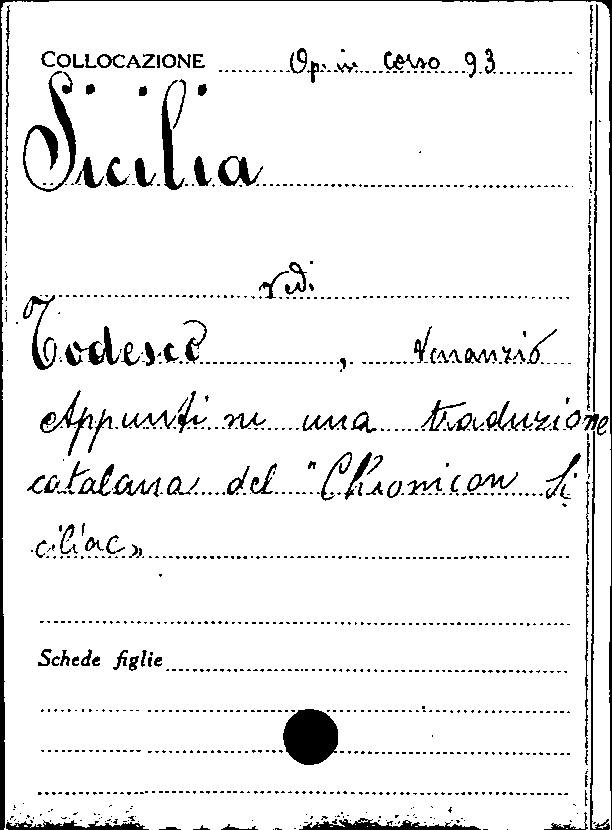 COLLOCAZIONE Op. in corso 93
Sicilia
vedi
Todesco, Venanzio
Appunti su una traduzione
catalana del "Chronicon Si
ciliac»
Schede figlie